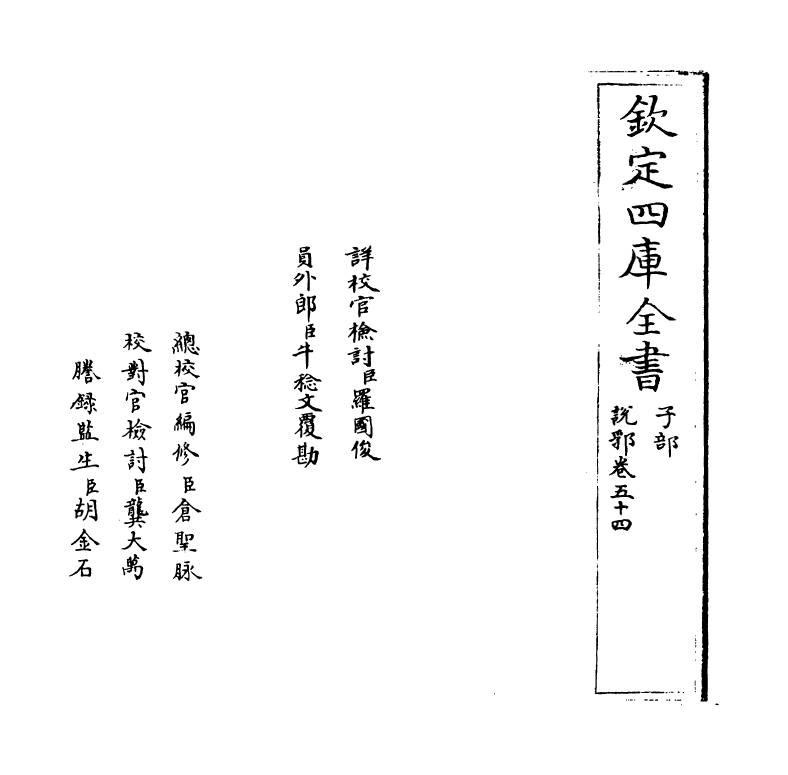 欽定四庫全書
子部
說郛卷五十四
詳校官檢討臣羅國俊
員外郎臣牛稔文覆勘
總校官編修臣倉聖脉
校對官檢討臣龔大萬
謄錄監生臣胡金石